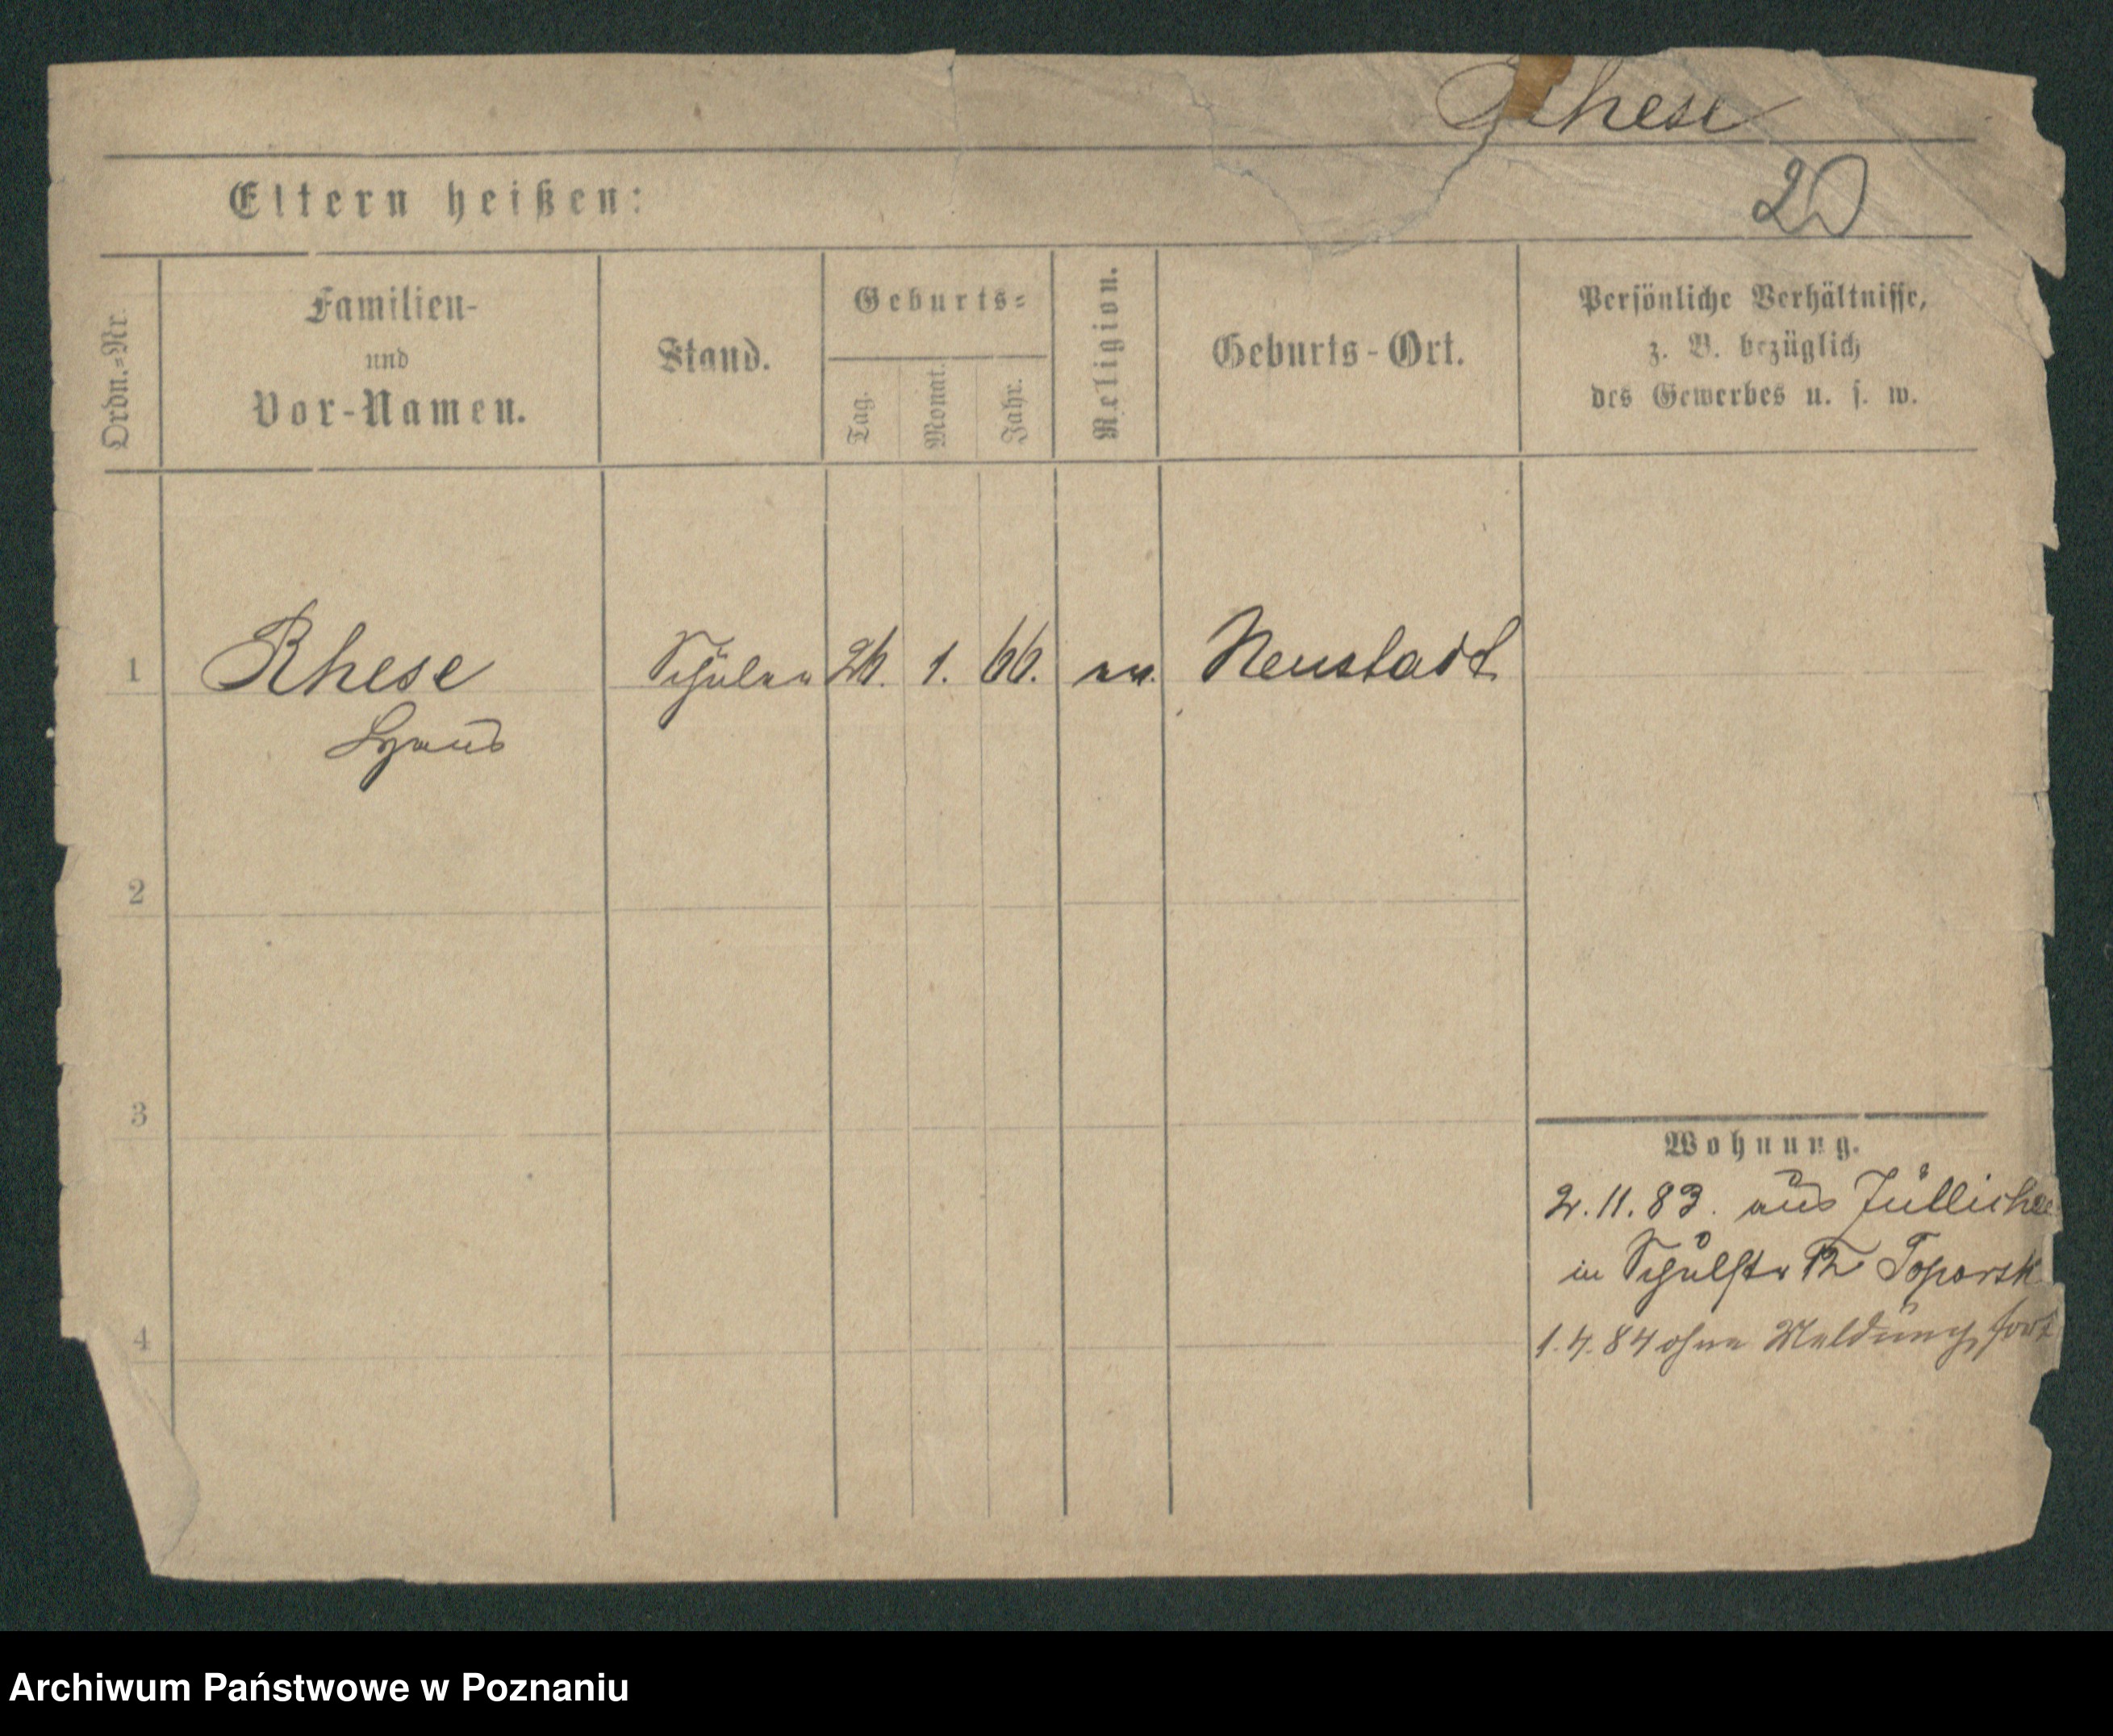 Rhese
20
Eltern heißen:
Ordn.-Nr.
Familien-
und
Vor-Namen.
Stand.
Geburts-
Tag.
Monat.
Jahr.
Religion.
Geburts-Ort.
Persönliche Verhältnisse,
z. B. bezüglich
des Gewerbes u. s. w.
1 Rhese Schüler 26. 1. 66. ev. Neustadt
2
3
Wohnung.
2.11.83. aus Züllichau
in Schulstr 12 Toporsk
4
1.4.84 ohne Meldung fort
Archiwum Państwowe w Poznaniu